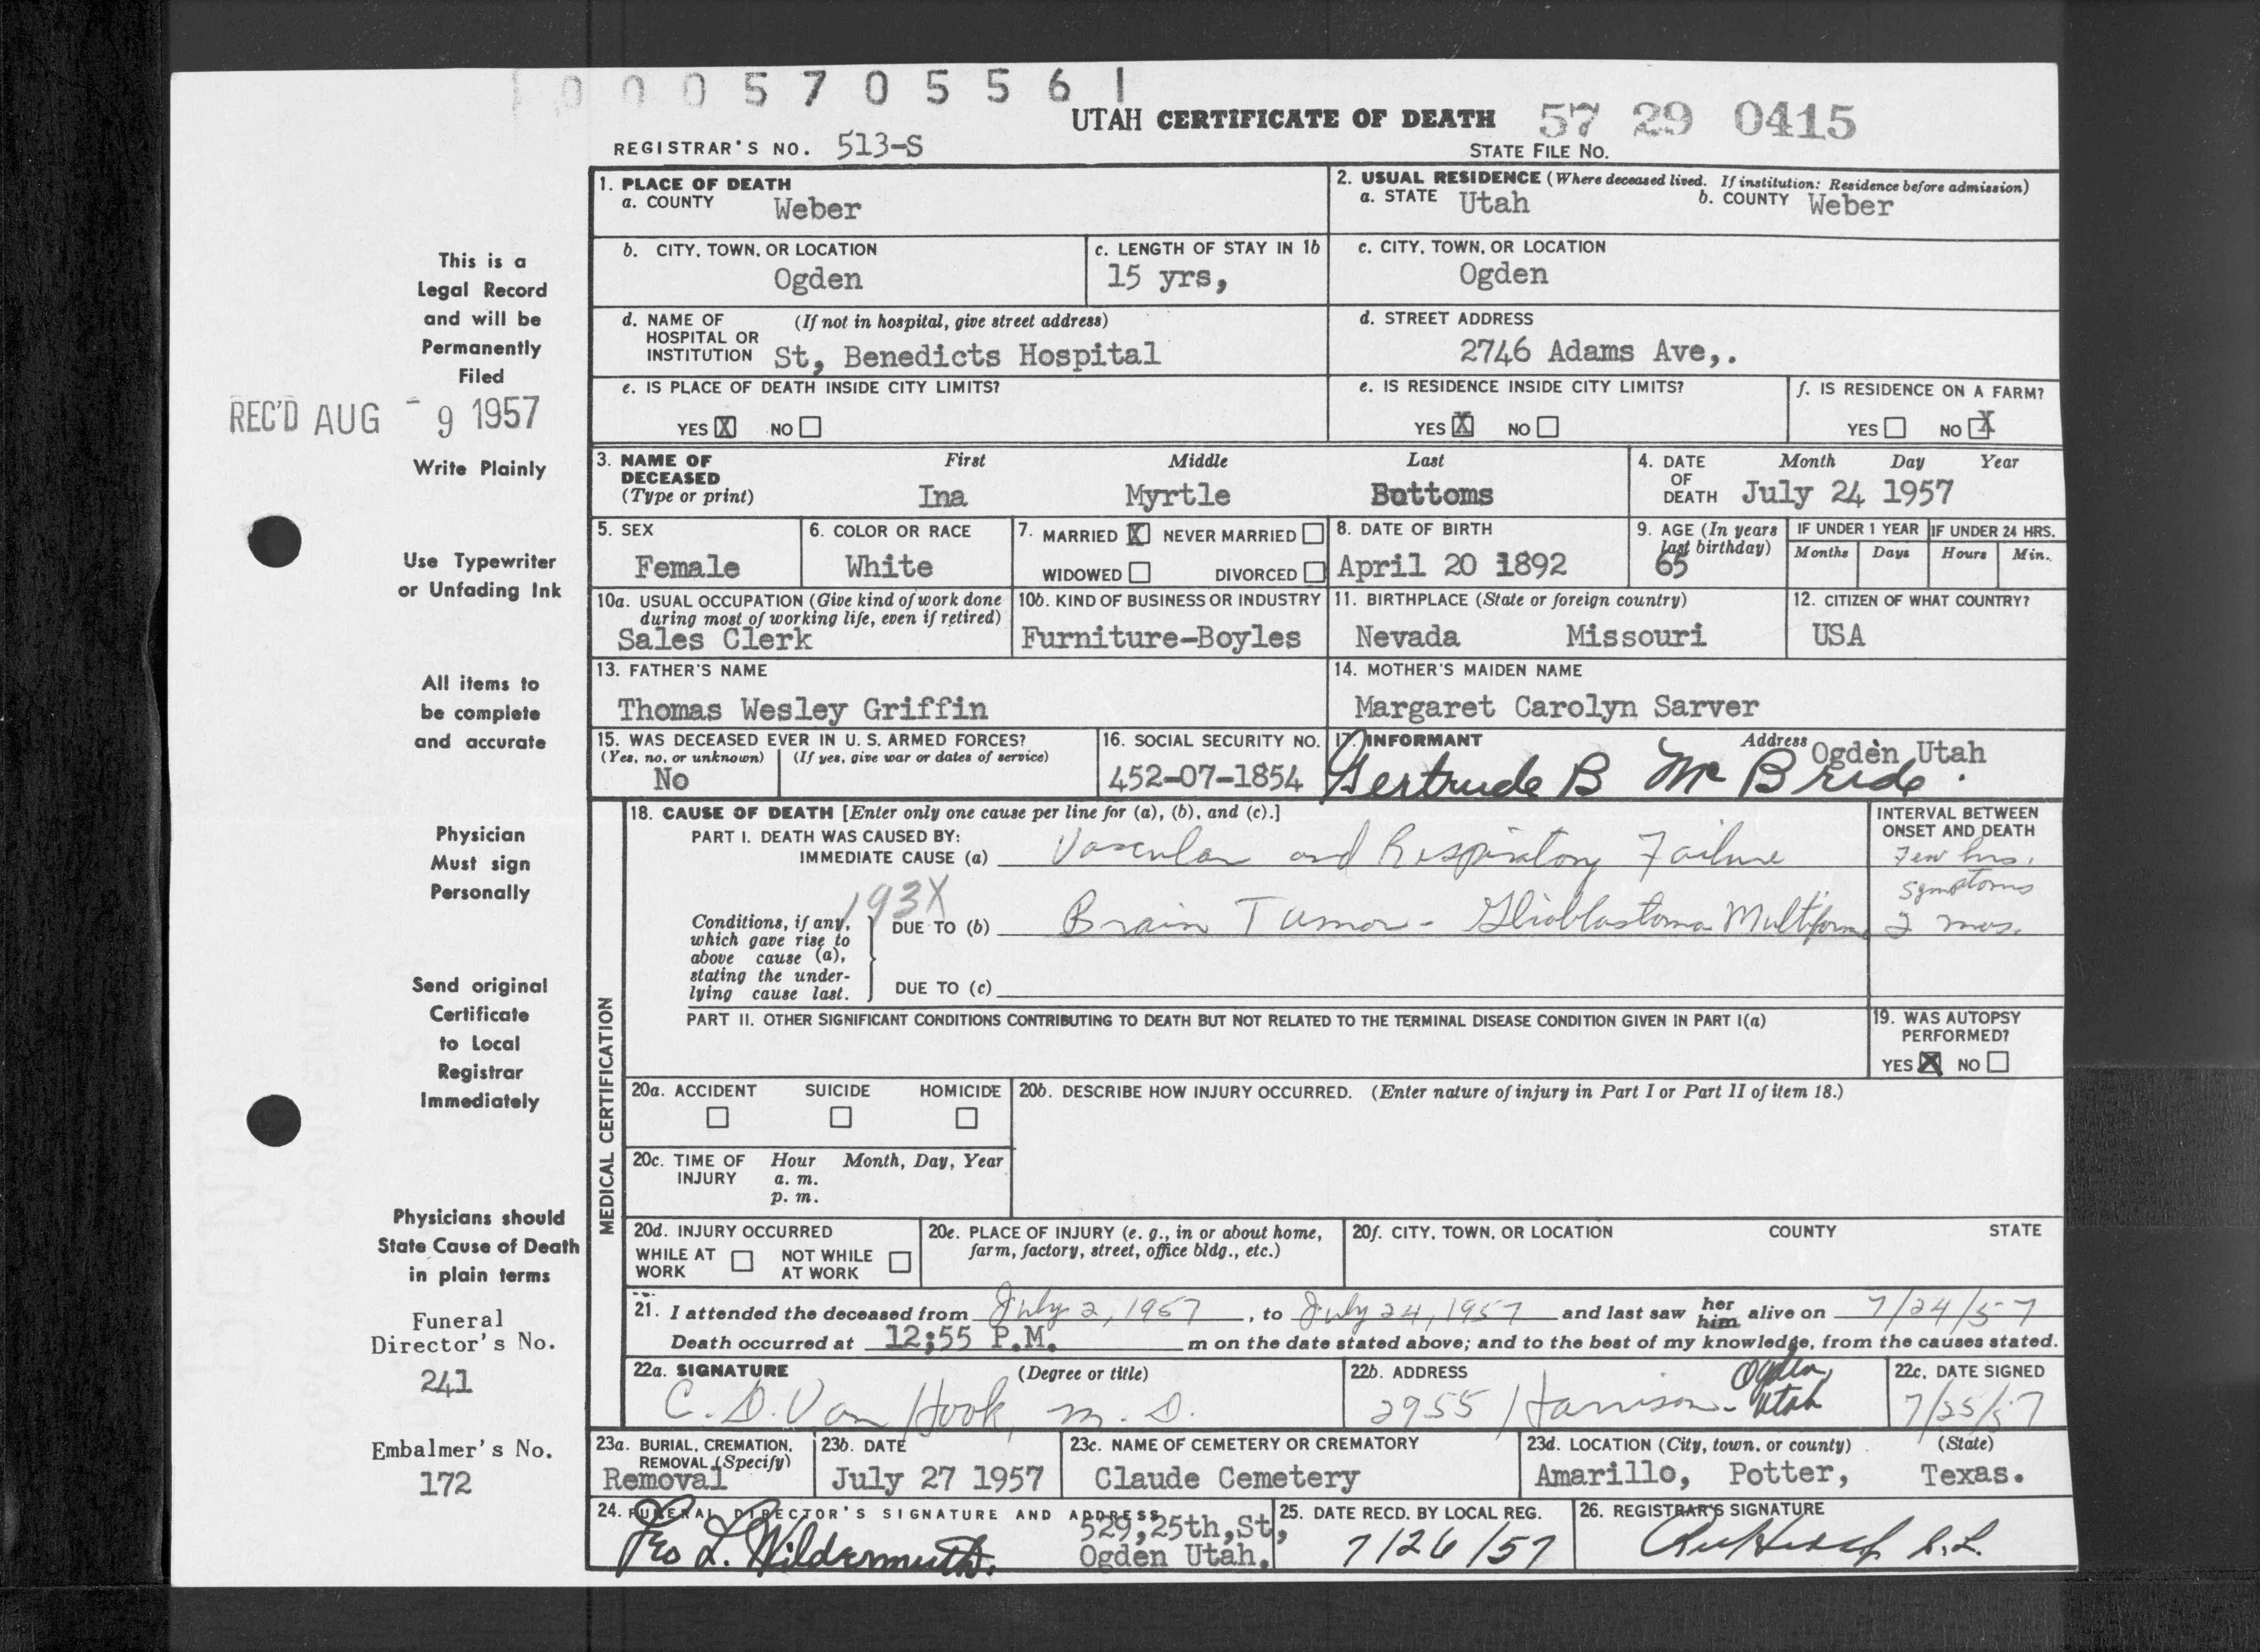 0 0 0 5 7 0 5 5 6 1
UTAH CERTIFICATE OF DEATH 57 29 0415
REGISTRAR'S NO. 513-S
STATE FILE NO.
1. PLACE OF DEATH
a. COUNTY Weber
2. USUAL RESIDENCE (Where deceased lived. If institution: Residence before admission)
a. STATE Utah b. COUNTY Weber
b. CITY, TOWN, OR LOCATION
Ogden
c. LENGTH OF STAY IN 1b
15 yrs,
c. CITY, TOWN, OR LOCATION
Ogden
d. NAME OF (If not in hospital, give street address)
HOSPITAL OR
INSTITUTION St, Benedicts Hospital
d. STREET ADDRESS
2746 Adams Ave,.
e. IS PLACE OF DEATH INSIDE CITY LIMITS?
YES X NO
e. IS RESIDENCE INSIDE CITY LIMITS?
YES X NO
f. IS RESIDENCE ON A FARM?
YES NO X
3. NAME OF First Middle Last
DECEASED
(Type or print) Ina Myrtle Bottoms
4. DATE Month Day Year
OF
DEATH July 24 1957
5. SEX
Female
6. COLOR OR RACE
White
7. MARRIED X NEVER MARRIED
WIDOWED DIVORCED
8. DATE OF BIRTH
April 20 1892
9. AGE (In years
last birthday)
65
IF UNDER 1 YEAR
Months Days
IF UNDER 24 HRS.
Hours Min.
10a. USUAL OCCUPATION (Give kind of work done
during most of working life, even if retired)
Sales Clerk
10b. KIND OF BUSINESS OR INDUSTRY
Furniture-Boyles
11. BIRTHPLACE (State or foreign country)
Nevada Missouri
12. CITIZEN OF WHAT COUNTRY?
USA
13. FATHER'S NAME
Thomas Wesley Griffin
14. MOTHER'S MAIDEN NAME
Margaret Carolyn Sarver
15. WAS DECEASED EVER IN U. S. ARMED FORCES?
(Yes, no, or unknown) (If yes, give war or dates of service)
No
16. SOCIAL SECURITY NO.
452-07-1854
17. INFORMANT Address Ogden Utah
Gertrude B McBride.
18. CAUSE OF DEATH [Enter only one cause per line for (a), (b), and (c).]
PART I. DEATH WAS CAUSED BY:
IMMEDIATE CAUSE (a) Vascular and Respiratory Failure
INTERVAL BETWEEN
ONSET AND DEATH
Few hrs.
193X
Conditions, if any,
which gave rise to
above cause (a),
stating the under-
lying cause last.
DUE TO (b) Brain Tumor - Glioblastoma Multiforme
symptoms
2 mos.
DUE TO (c)
PART II. OTHER SIGNIFICANT CONDITIONS CONTRIBUTING TO DEATH BUT NOT RELATED TO THE TERMINAL DISEASE CONDITION GIVEN IN PART I(a)
19. WAS AUTOPSY
PERFORMED?
YES X NO
MEDICAL CERTIFICATION
20a. ACCIDENT SUICIDE HOMICIDE
20b. DESCRIBE HOW INJURY OCCURRED. (Enter nature of injury in Part I or Part II of item 18.)
20c. TIME OF Hour Month, Day, Year
INJURY a. m.
p. m.
20d. INJURY OCCURRED
WHILE AT NOT WHILE
WORK AT WORK
20e. PLACE OF INJURY (e. g., in or about home,
farm, factory, street, office bldg., etc.)
20f. CITY, TOWN, OR LOCATION COUNTY STATE
21. I attended the deceased from July 2, 1957, to July 24, 1957 and last saw her him alive on 7/24/57
Death occurred at 12;55 P.M. m on the date stated above; and to the best of my knowledge, from the causes stated.
22a. SIGNATURE (Degree or title)
C. D. Van Hook, M. D.
22b. ADDRESS
2955 Harrison - Ogden, Utah
22c. DATE SIGNED
7/25/57
23a. BURIAL, CREMATION,
REMOVAL (Specify)
Removal
23b. DATE
July 27 1957
23c. NAME OF CEMETERY OR CREMATORY
Claude Cemetery
23d. LOCATION (City, town, or county) (State)
Amarillo, Potter, Texas.
24. FUNERAL DIRECTOR'S SIGNATURE AND ADDRESS
Leo L. Wildermuth.
529, 25th, St,
Ogden Utah.
25. DATE RECD. BY LOCAL REG.
7/26/57
26. REGISTRAR'S SIGNATURE
This is a
Legal Record
and will be
Permanently
Filed
REC'D AUG - 9 1957
Write Plainly
Use Typewriter
or Unfading Ink
All items to
be complete
and accurate
Physician
Must sign
Personally
Send original
Certificate
to Local
Registrar
Immediately
Physicians should
State Cause of Death
in plain terms
Funeral
Director's No.
241
Embalmer's No.
172